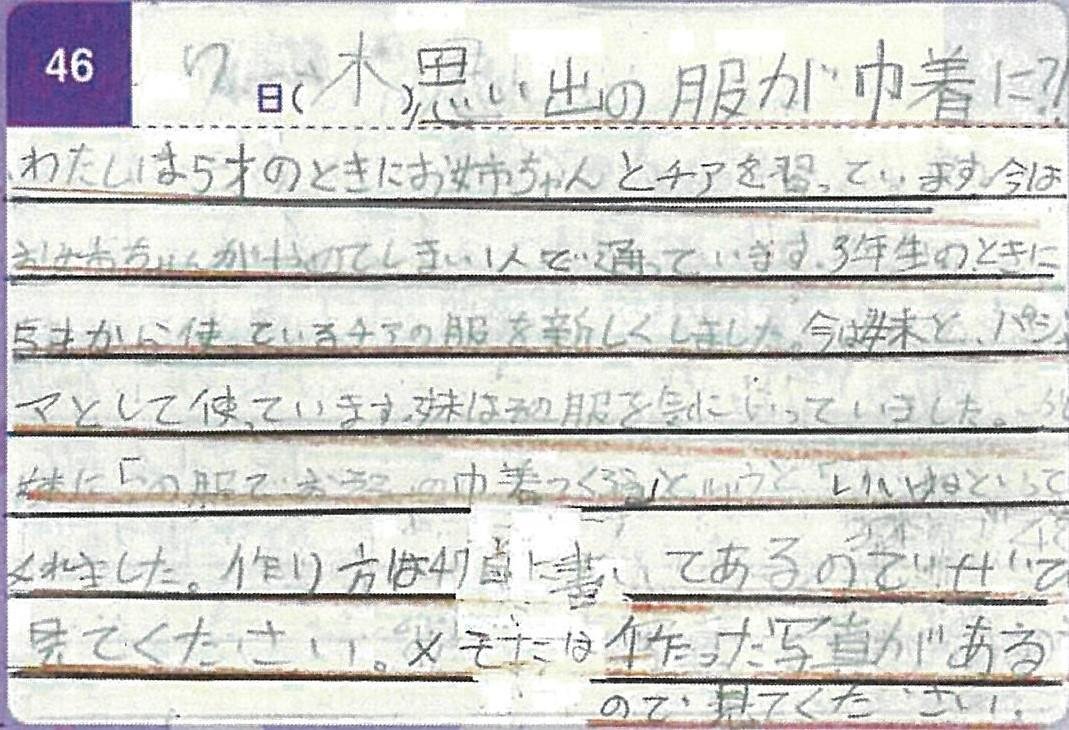 46
7日(木)思い出の服が巾着に?!
わたしは5才のときにお姉ちゃんとチアを習っています。今は
お姉ちゃんがやめてしまい1人で通っています。3年生のときに
使っているチアの服を新しくしました。今は妹と、パジ
マとして使っています。妹はその服を気にいっていました。
妹に「の服でおそろの巾着つくろ」というと「いいねといって
くれました。作り方は47頁に書いてあるので
見てください。作った写真がある
ので見てください。